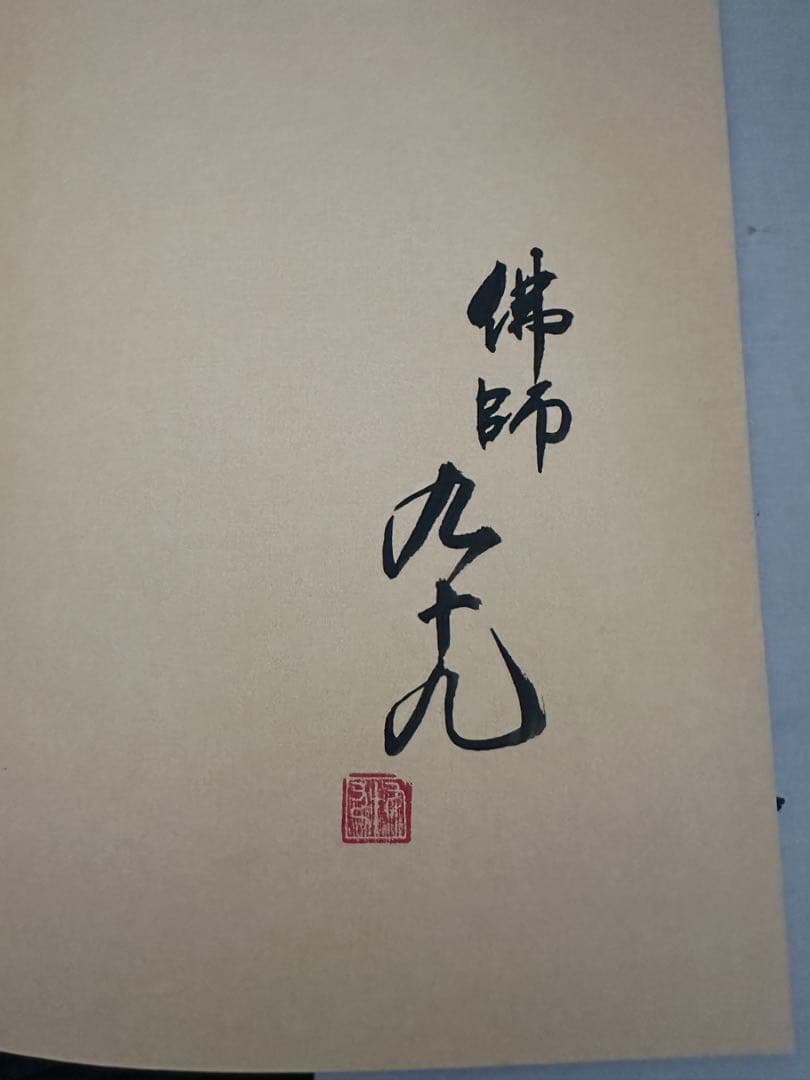 佛師
九十九